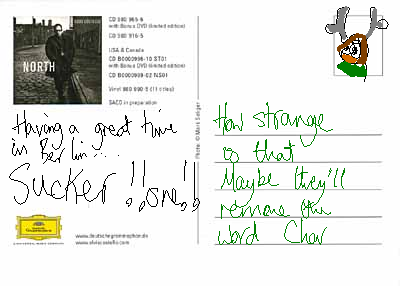 NORTH
CD 980 965-6
with Bonus DVD (limited edition)
CD 980 916-5
USA & Canada
CD B0000996-10 ST01
with Bonus DVD (limited edition)
CD B0000999-02 NS01
Vinyl 980 890 5 (11 titles)
SACD in preparation
Photo: © Mark Seliger
Having a great time
in Berlin....
SUCKER !!one!!
www.deutschegrammophon.de
www.elviscostello.com
How strange
is that
Maybe they'll
remove the
word Char